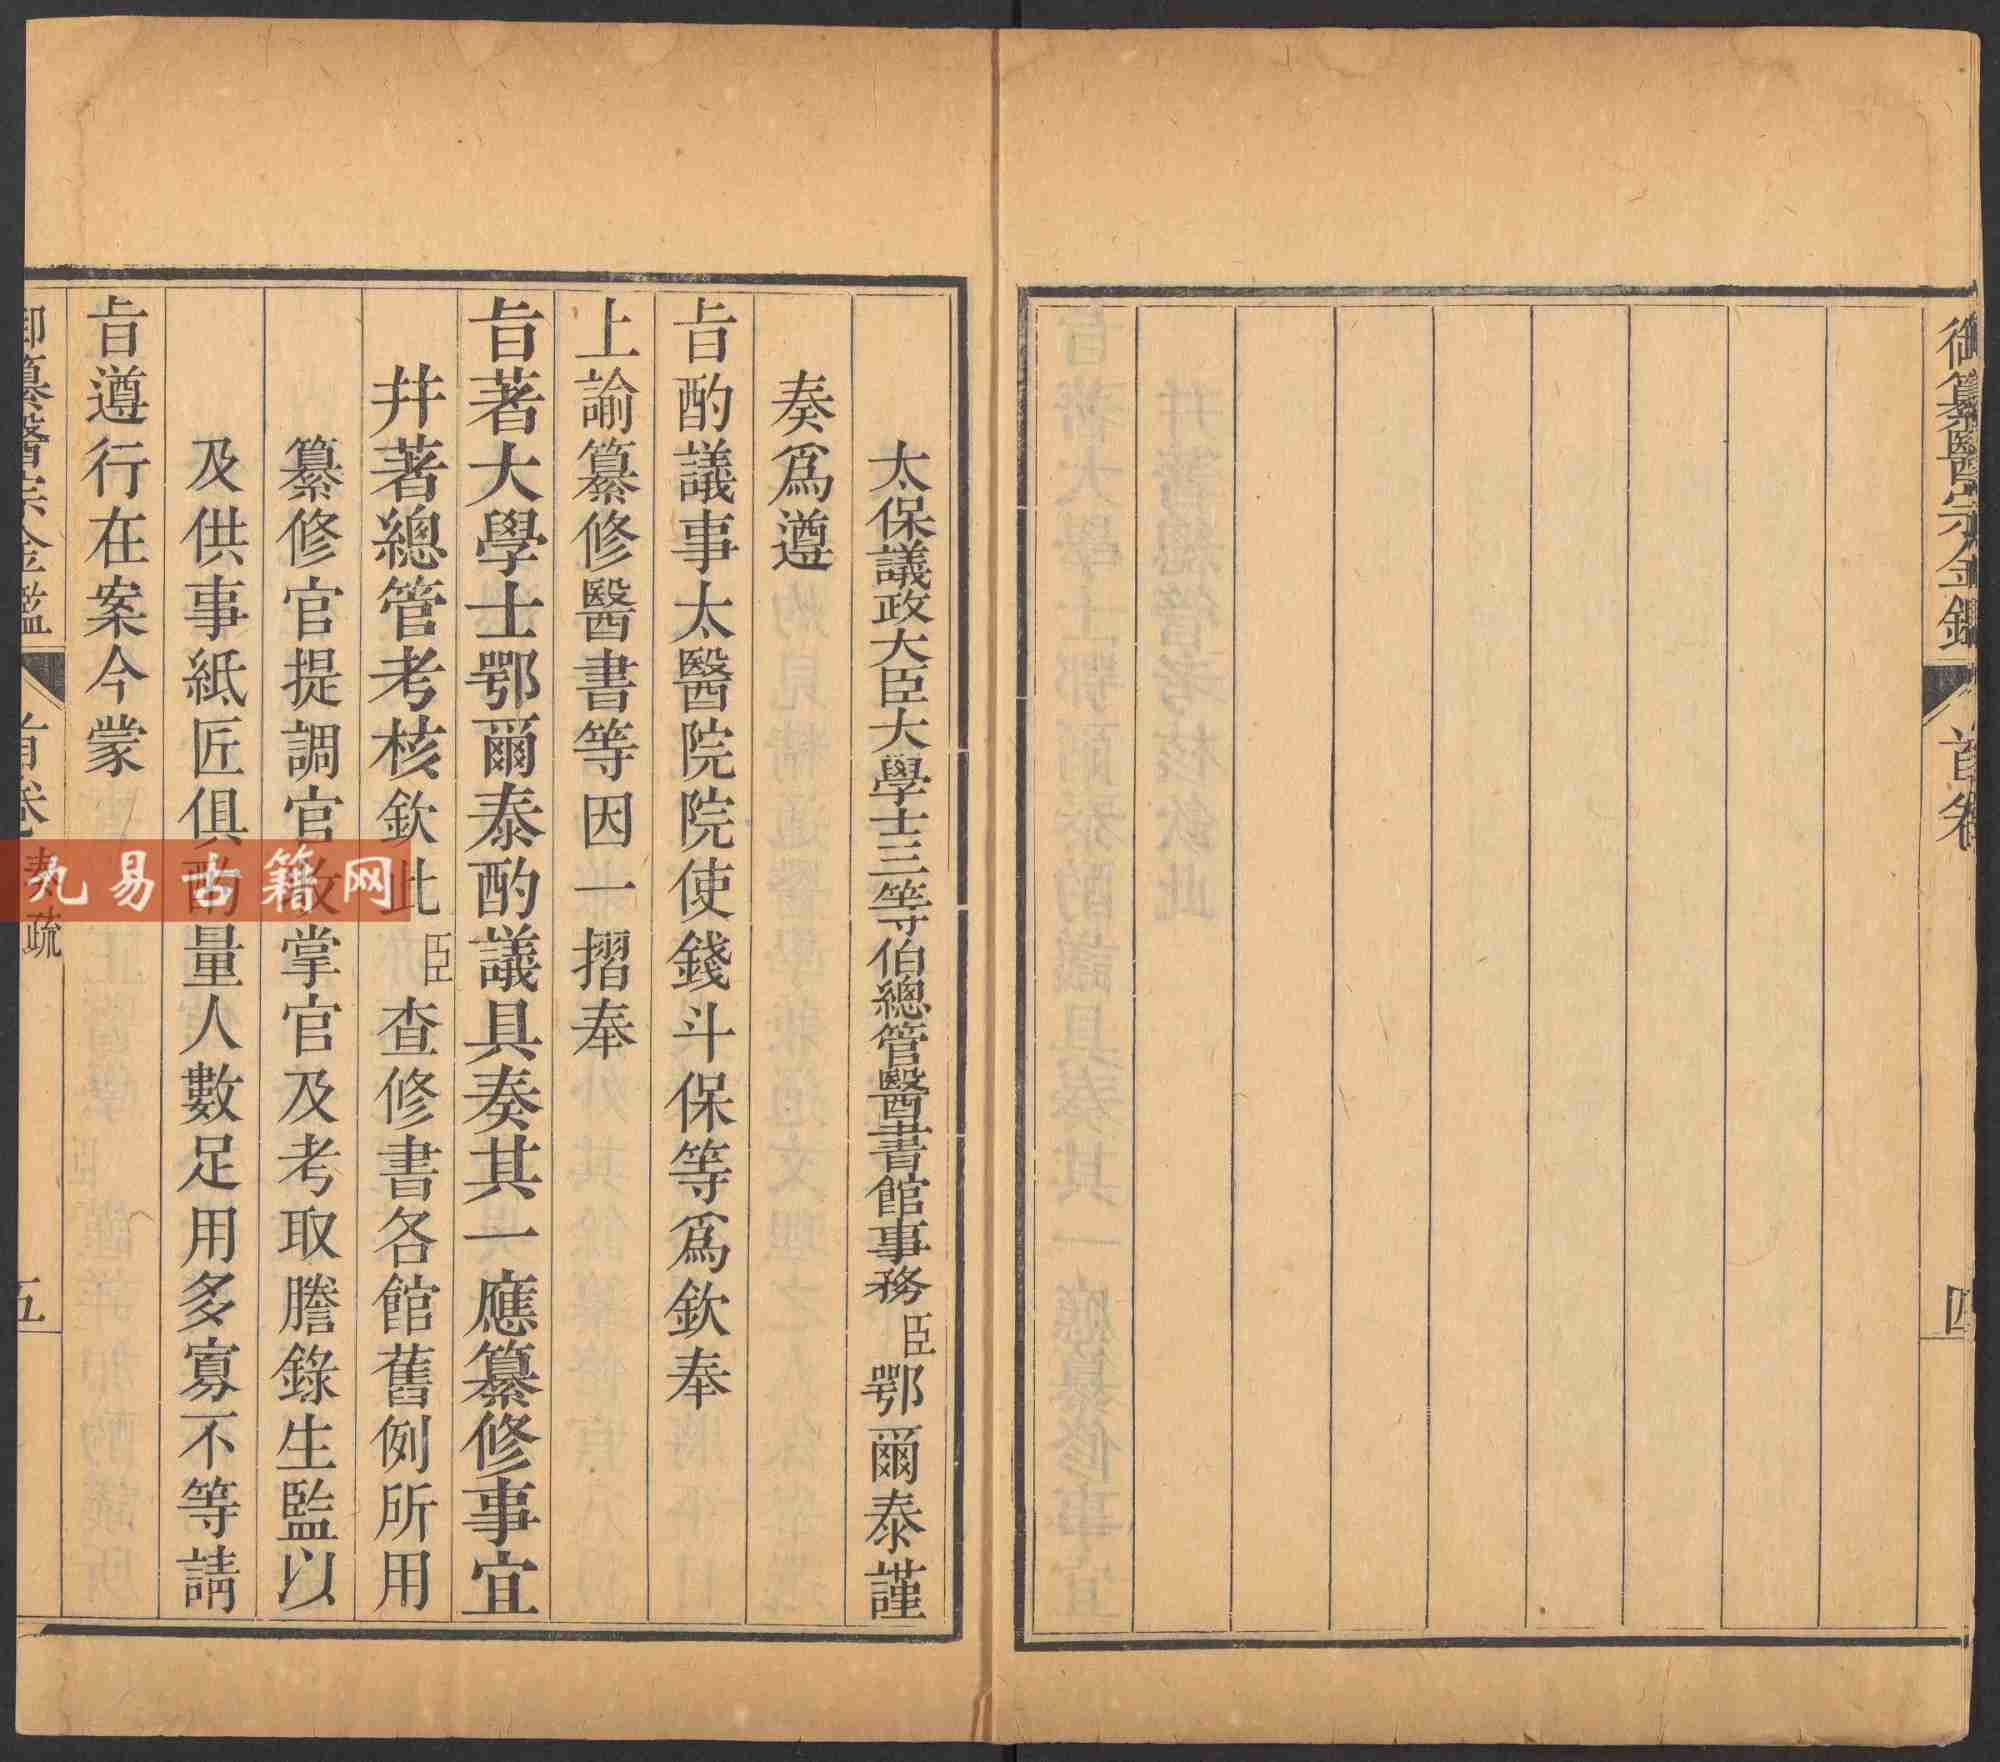 御纂醫宗金鑑 首卷 四
太保議政大臣大學士三等伯總管醫書館事務臣鄂爾泰謹
奏爲遵
旨酌議事太醫院院使錢斗保等爲欽奉
上諭纂修醫書等因一摺奉
旨著大學士鄂爾泰酌議具奏其一應纂修事宜
并著總管考核欽此臣查修書各館舊例所用
纂修官提調官收掌官及考取謄錄生監以
及供事紙匠俱酌量人數足用多寡不等請
旨遵行在案今蒙
御纂醫宗金鑑 首卷 奏疏 五
九易古籍网